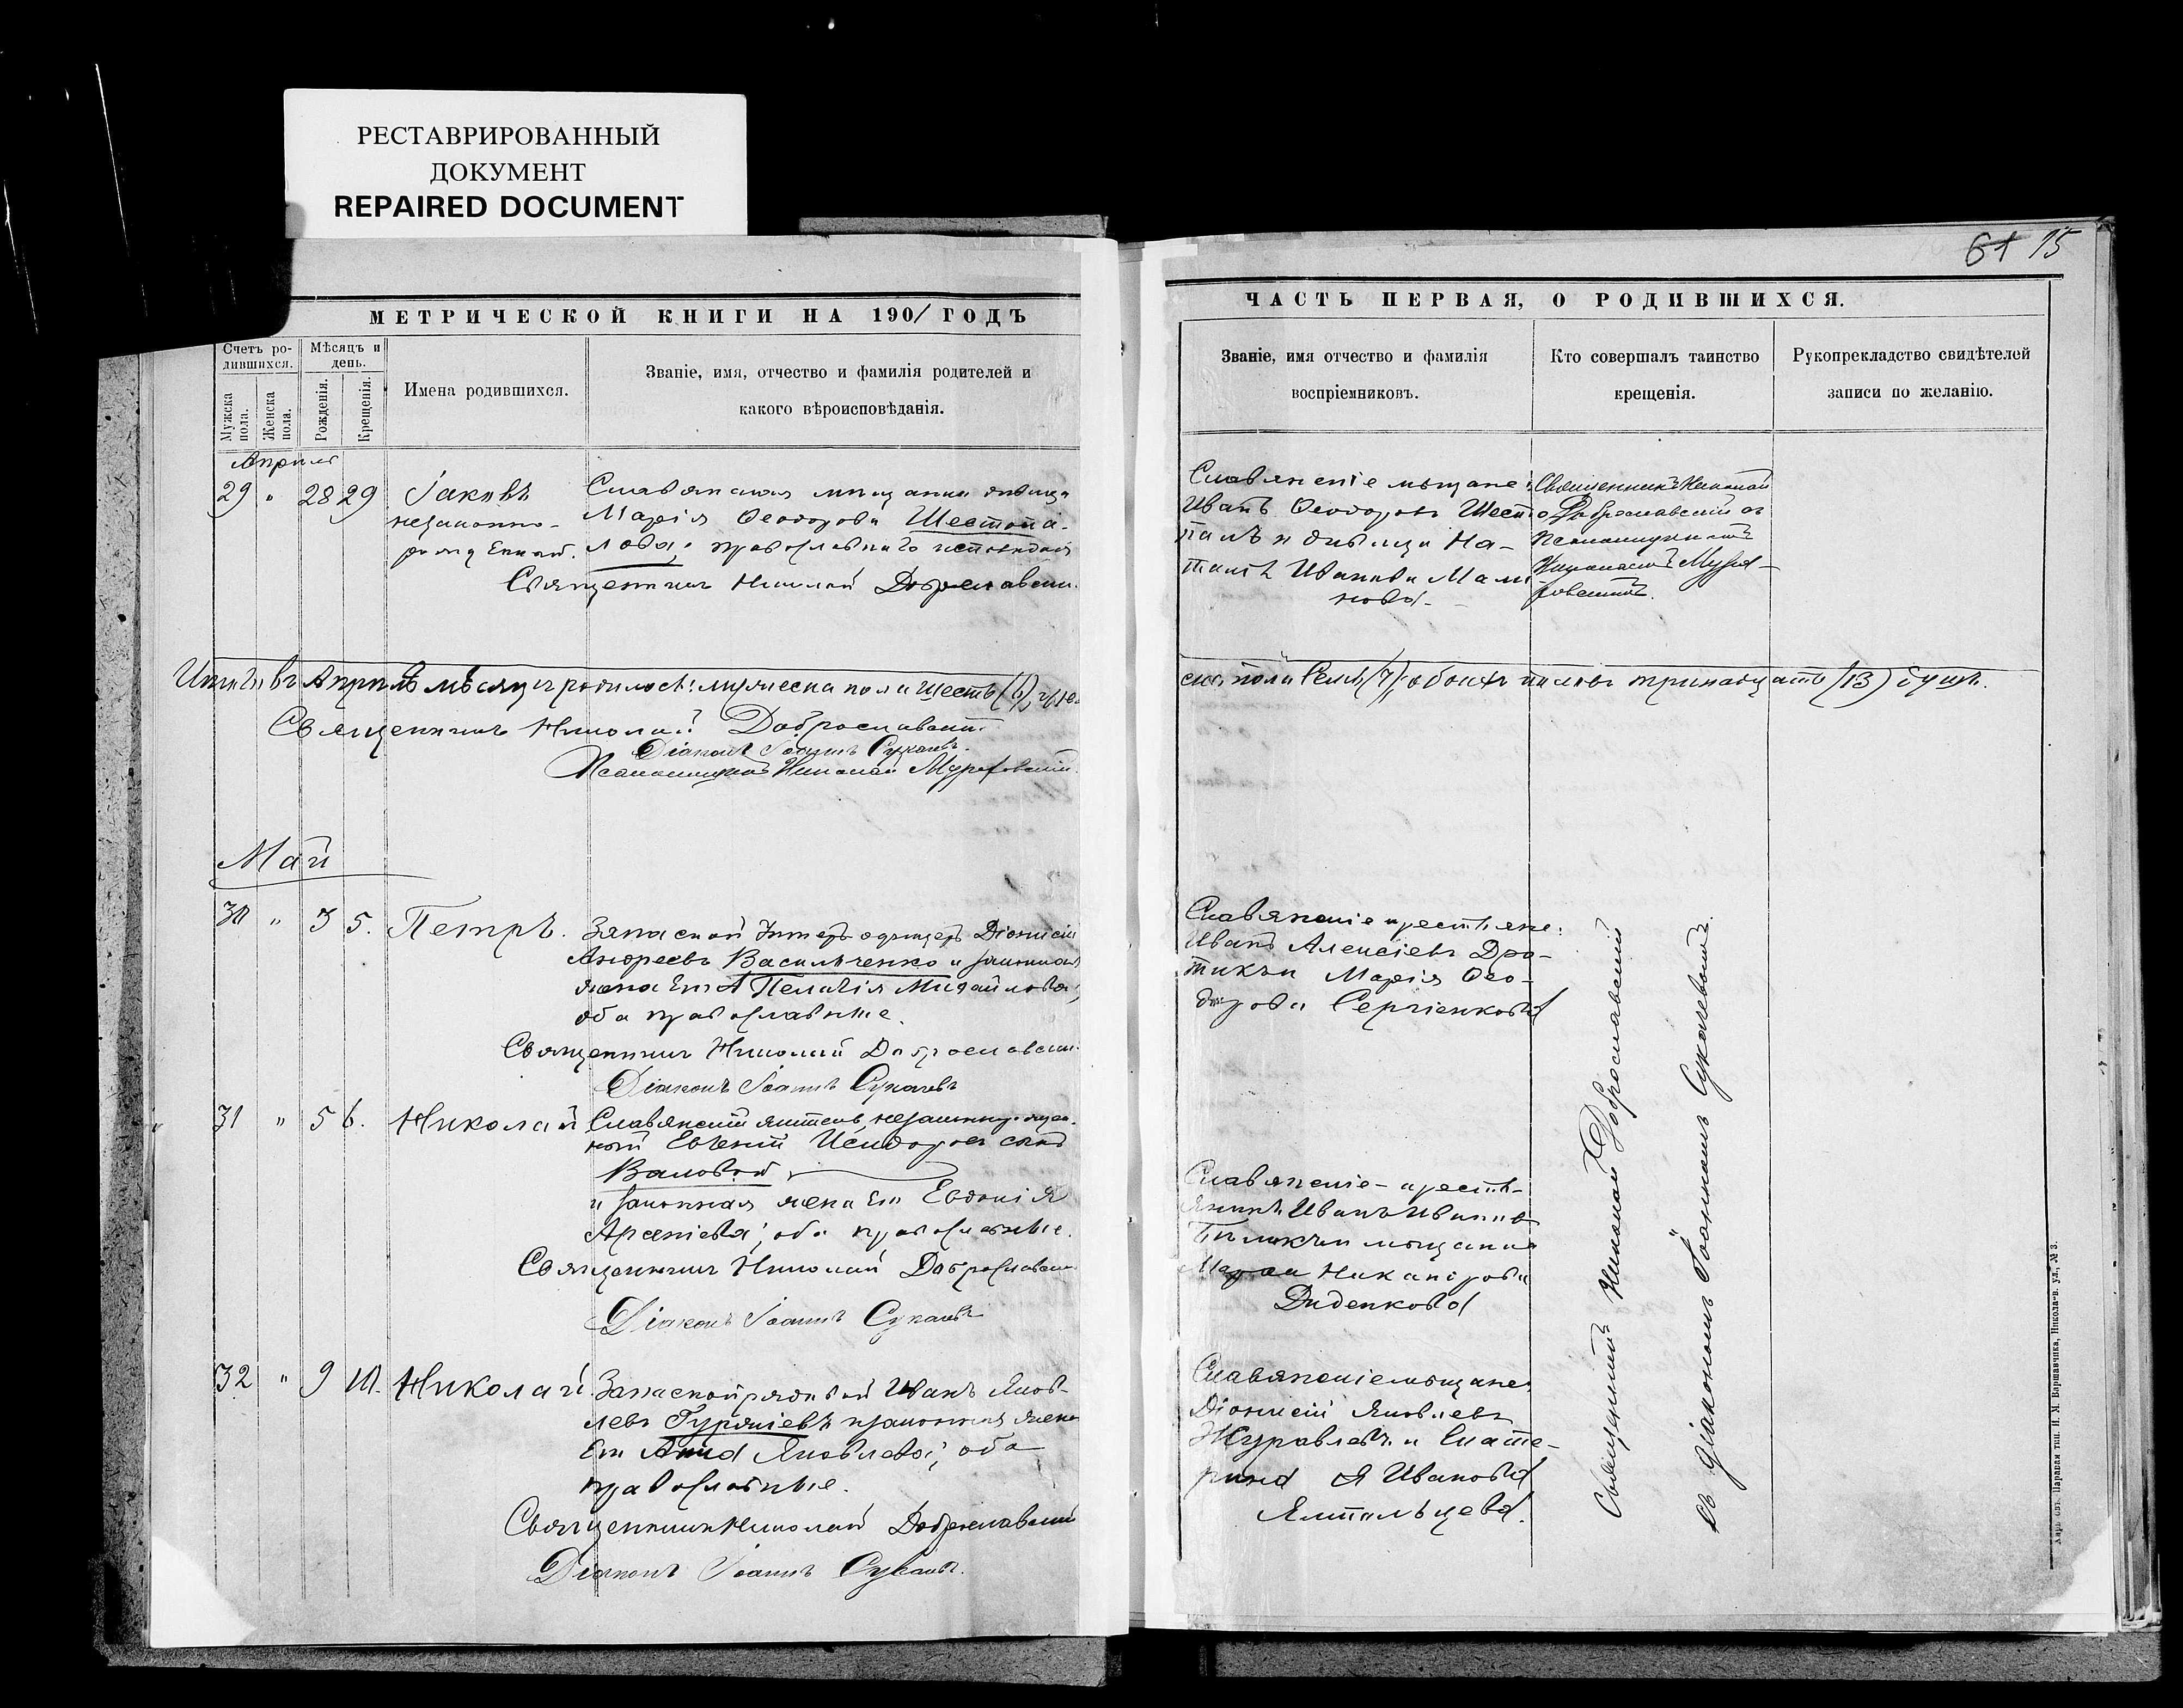 РЕСТАВРИРОВАННЫЙ
ДОКУМЕНТ
REPAIRED DOCUMENT
МЕТРИЧЕСКОЙ КНИГИ НА 1901 ГОДЪ
Счетъ ро-
дившихся.
Мужска
пола.
Женска
пола.
Мѣсяцъ и
день.
Рожденія.
Крещенія.
Имена родившихся.
Званіе, имя, отчество и фамилія родителей и
какого вѣроисповѣданія.
Апрѣль
29 " 28 29
Іаковъ
незаконно-
Славянская мѣщанка дѣвица
Марія Ѳеодорова Шестопа-
лова, православнаго исповѣданія
Священникъ Николай Доброславскій
Итого въ Апрѣлѣ мѣсяцѣ родилось: мужеска пола шесть (6), жен-
Священникъ Николай Доброславскій
Діаконъ Іоаннъ Сукачевъ.
Псаломщикъ Николай
Май
30 " 3 5. Петръ.
Запасной унтеръ-офицеръ Діонисій
Андреевъ Васильченко и законная
жена его Пелагія Михайлова,
оба православные.
Священникъ Николай Доброславскій
Діаконъ Іоаннъ Сукачевъ
31 " 5 6. Николай
Славянскій
Евгеній Исидоровъ сынъ
Валовой
и законная жена его Евдокія
Арсеніева; оба православные.
Священникъ Николай Доброславскій
Діаконъ Іоаннъ Сукачевъ
32 " 9 10. Николай
Запасной рядовой Иванъ Яков-
левъ Гуржіевъ и законная жена
его Анна Яковлева; оба
православные.
Священникъ Николай Доброславскій
Діаконъ Іоаннъ Сукачевъ.
61 15
ЧАСТЬ ПЕРВАЯ, О РОДИВШИХСЯ.
Званіе, имя отчество и фамилія
воспріемниковъ.
Кто совершалъ таинство
крещенія.
Рукоприкладство свидѣтелей
записи по желанію.
Славянскіе мѣщане:
Иванъ Ѳеодоровъ Шесто-
палъ и дѣвица На-
талія Иванова Мали-
нова.
Священникъ Николай
Доброславскій съ
псаломщикомъ
Николаемъ
ска пола семь (7), обоихъ половъ тринадцать (13) душъ.
Славянскіе крестьяне:
Иванъ Алексіевъ Дро-
тикъ и Марія Ѳео-
дорова Сергіенкова
Славянскіе - кресть-
янинъ Иванъ Ивановъ
мѣщанка
Марѳа Никанорова
Диденкова
Славянскіе мѣщане
Діонисій Яковлевъ
Журавлевъ и Екате-
рина Иванова
Ялтальцева.
Священникъ Николай Доброславскій
съ діакономъ Іоанномъ Сукачевымъ.